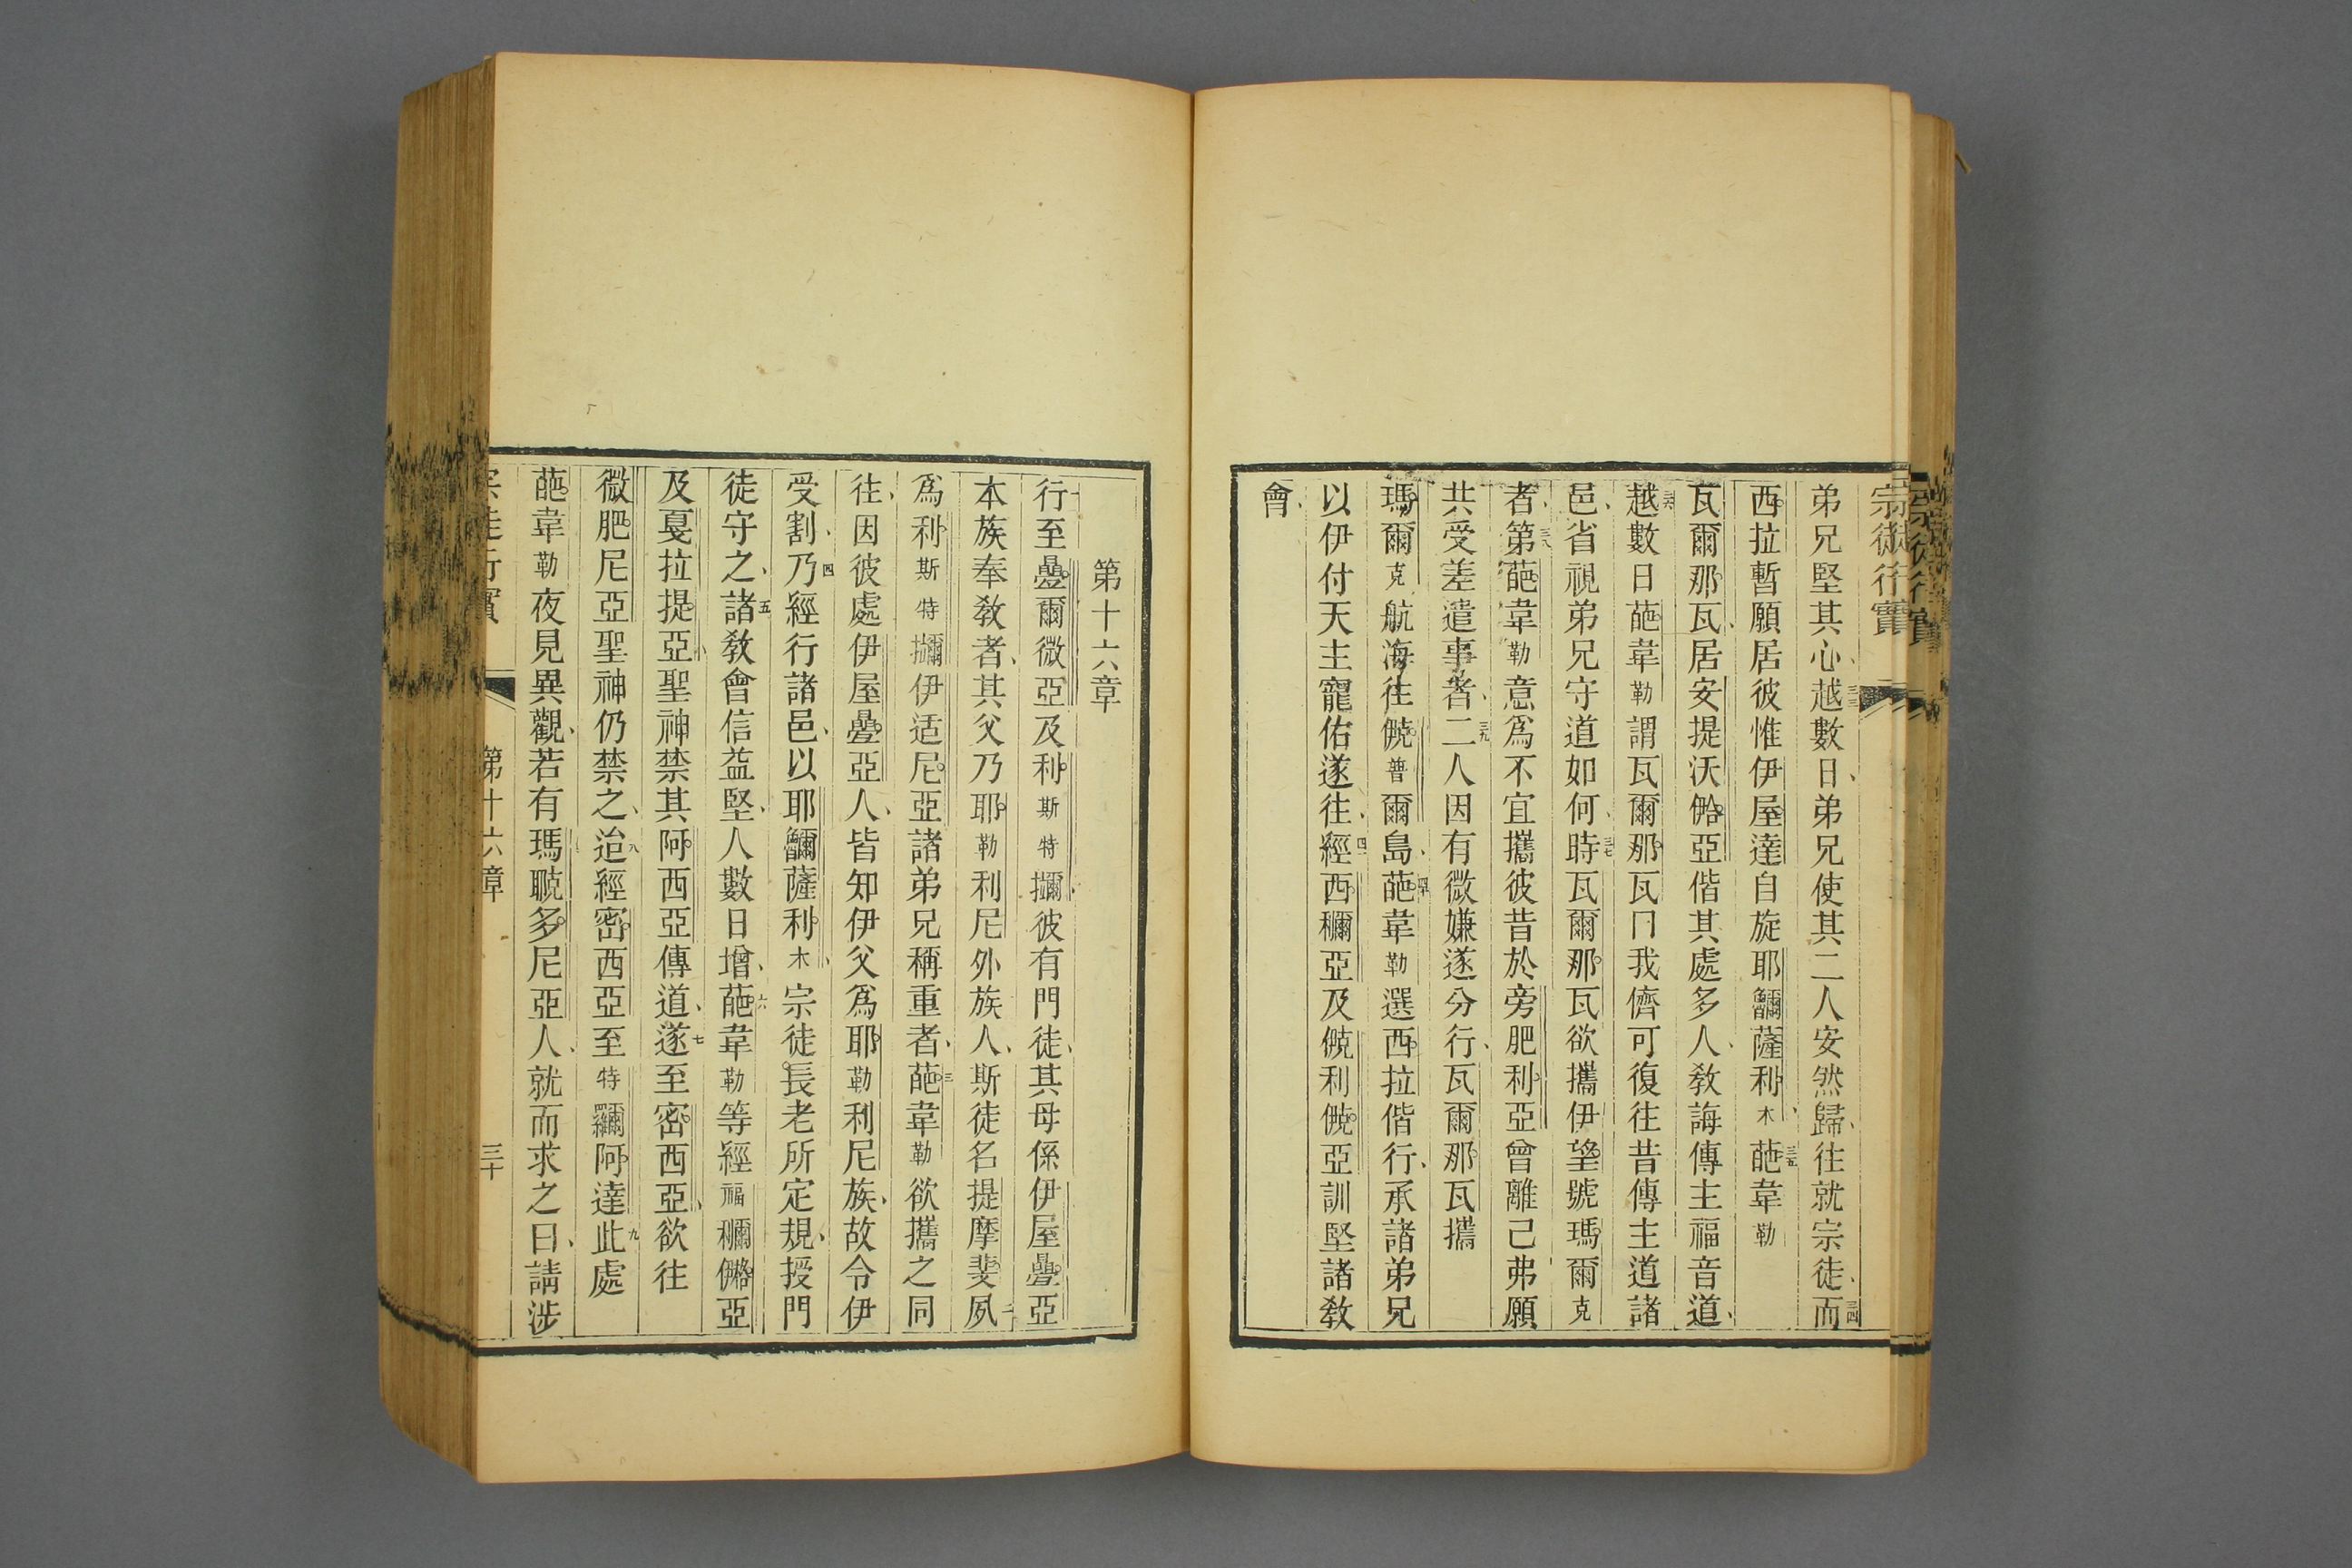 宗徒行實
弟兄堅其心、三三越數日、弟兄使其二人安然歸、往就宗徒、三四而
西拉暫願居彼惟伊屋達自旋耶𩵀薩利木、三五葩韋勒
瓦爾那瓦、居安提沃亞偕其處多人、教誨傳主福音道、
三六越數日葩韋勒謂瓦爾那瓦曰我儕可復往昔傳主道諸
邑、省視弟兄守道如何、三七時瓦爾那瓦欲攜伊望號瑪爾克
者、三八第葩韋勒意爲不宜攜彼昔於旁肥利亞曾離己弗願
共受差遣事者、三九二人因有微嫌遂分行、瓦爾那瓦攜
瑪爾克航海往普爾島、四十葩韋勒選西拉偕行、承諸弟兄
以伊付天主寵佑遂往、四一經西亞及利亞訓堅諸教
會、
第十六章
一行至爾微亞及利斯特彼有門徒、其母係伊屋亞
本族奉教者、其父乃耶勒利尼外族人、斯徒名提摩斐夙二
爲利斯特伊适尼亞諸弟兄稱重者、三葩韋勒欲攜之同
往、因彼處伊屋亞人、皆知伊父爲耶勒利尼族、故令伊
受割、四乃經行諸邑、以耶薩利木、宗徒長老所定規、授門
徒守之、五諸教會信益堅、人數日增、六葩韋勒等經福亞
及戛拉提亞、聖神禁其阿西亞傳道、七遂至密西亞、欲往
微肥尼亞聖神仍禁之、八迨經密西亞至特阿達九此處
葩韋勒夜見異觀、若有瑪多尼亞人、就而求之曰、請涉
宗徒行實
第十六章
三十